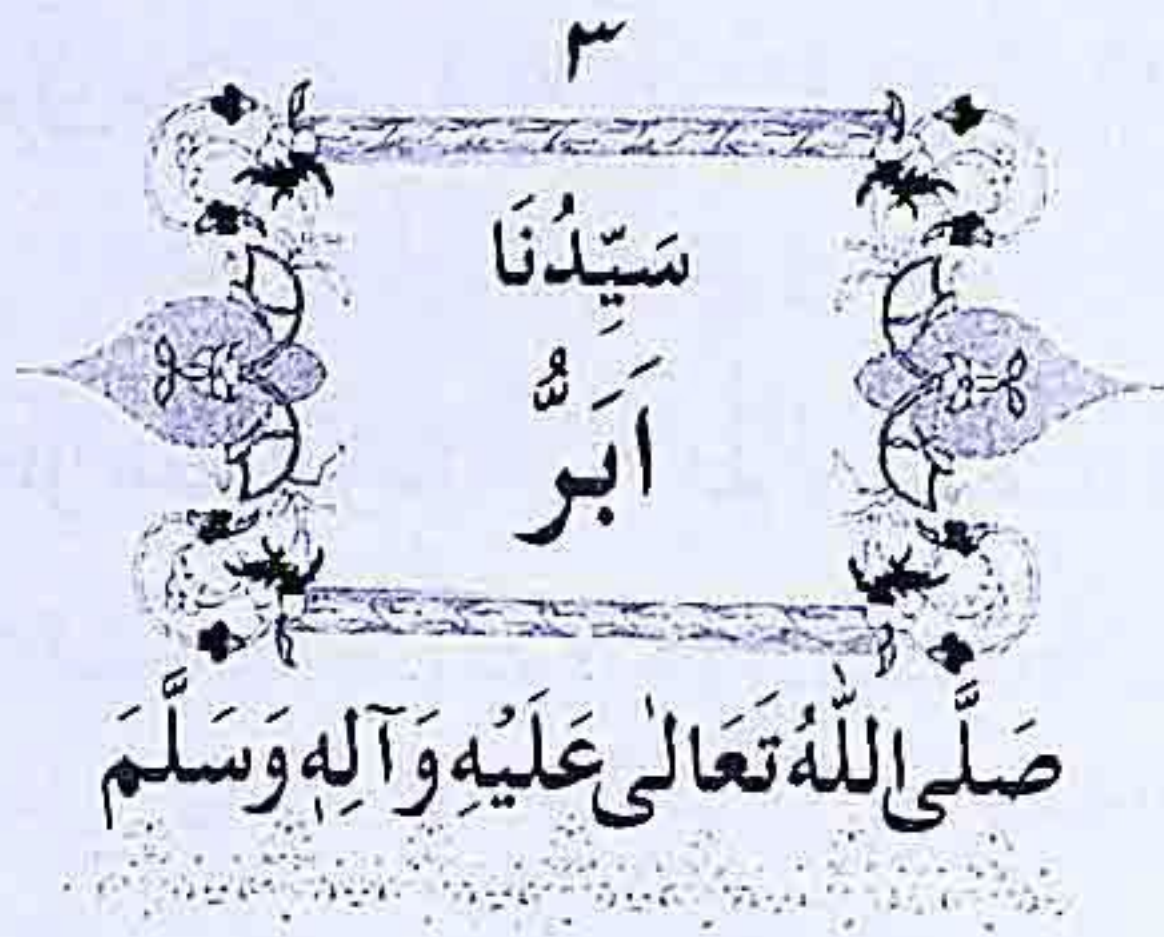 ٣
سَيِّدُنَا
اَبَرُّ
صَلَّى اللّٰهُ تَعَالٰى عَلَيْهِ وَآلِهٖ وَسَلَّمَ